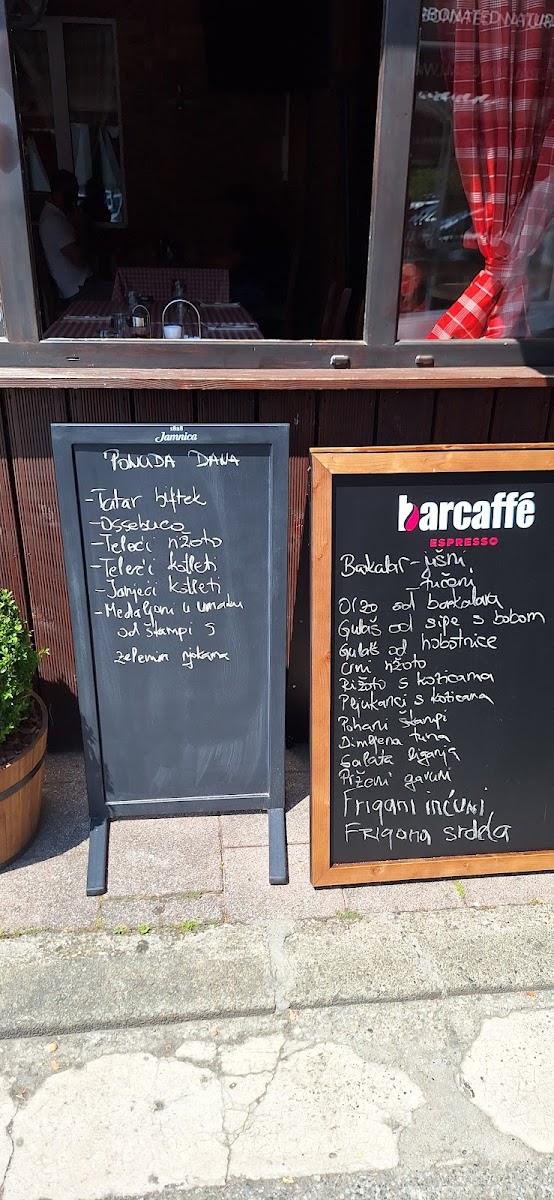 BONATED NATUR
1828
Jamnica
PONUDA DANA
-Tatar biftek
-Ossobuco
-Teleći rižoto
-Teleći kotleti
-Janjeći kotleti
-Medaljoni u umaku
od štampi s
zelenim njokama
barcaffé
ESPRESSO
Bakalar-jušni
Orzo od bakalara
Gulaš od sipe s bobom
Gulaš od hobotnice
Crni rižoto
Rižoto s kozicama
Pljukanci s kozicama
Pohani štampi
Dimljena tuna
Salata liganja
Prženi gavuni
Frigani inćuni
Frigana srdela